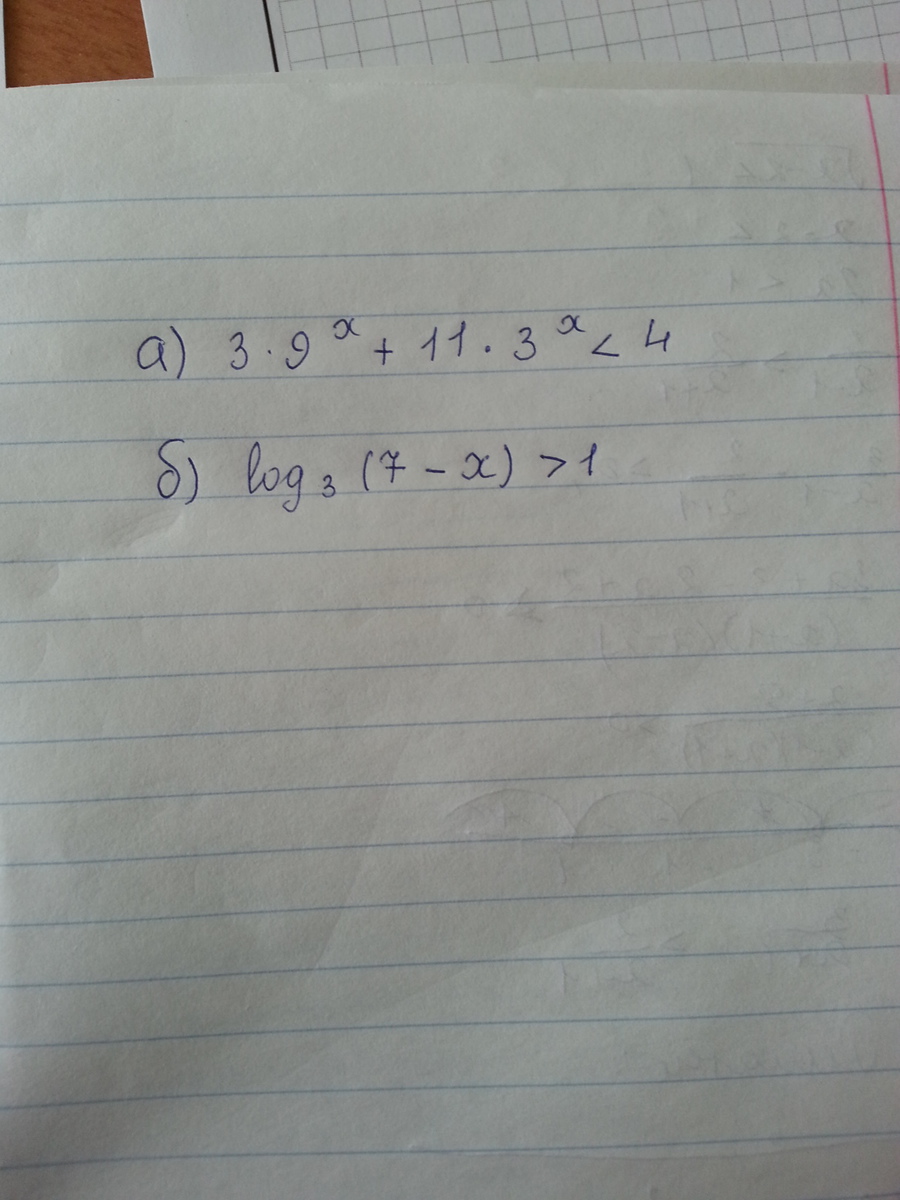 а) 3 · 9^x + 11 · 3^x < 4
б) log₃ (7 – x) > 1